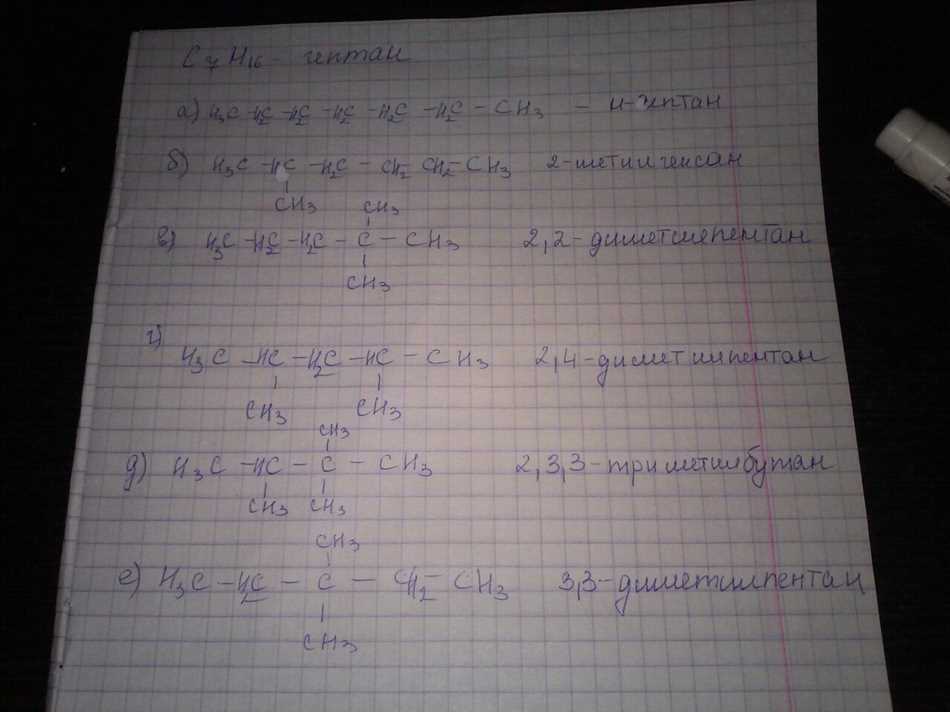 C₇H₁₆ - гептан
а) H₃C - H₂C - H₂C - H₂C - H₂C - H₂C - CH₃ - н-гептан
б) H₃C - HC - H₂C - CH₂ - CH₂ - CH₃ 2-метилгексан
CH₃
CH₃
в) H₃C - H₂C - H₂C - C - CH₃ 2,2-диметилпентан
CH₃
г)
H₃C - HC - H₂C - HC - CH₃ 2,4-диметилпентан
CH₃ CH₃
CH₃
д) H₃C - HC - C - CH₃ 2,3,3-триметилбутан
CH₃ CH₃
CH₃
е) H₃C - H₂C - C - CH₂ - CH₃ 3,3-диметилпентан
CH₃